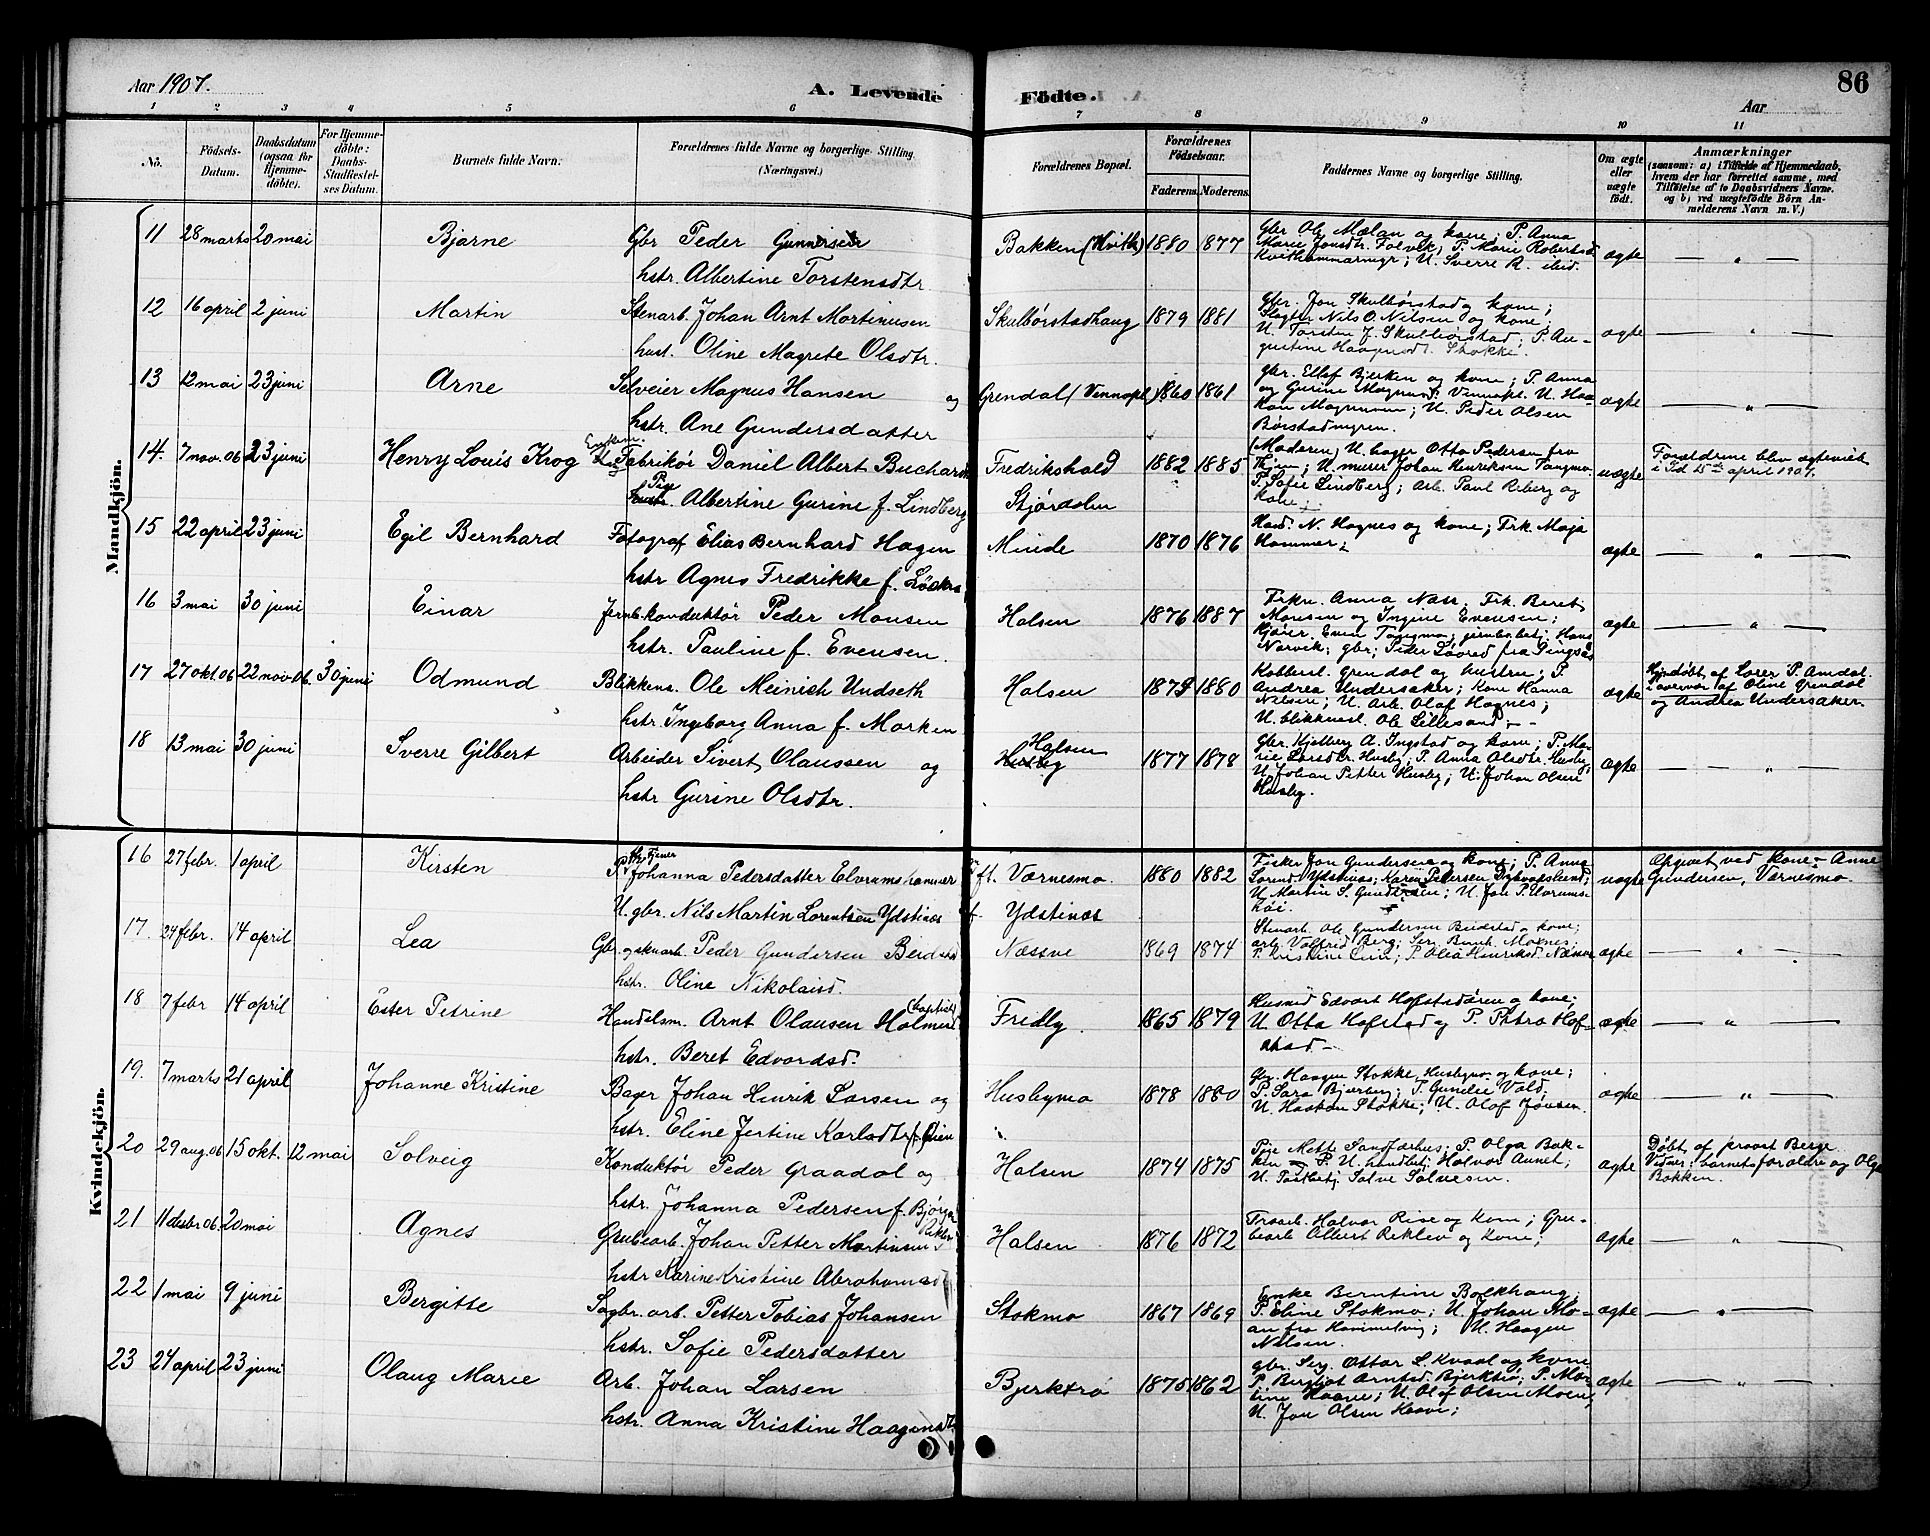 Aar 1907.
A. Levende Födte.
86
Aar
1 2 3 4 5 6 7 8 9 10 11
No.
Födsels-Datum.
Daabsdatum (ogsaa for Hjemmedöbte).
For Hjemmedöbte: Daabs-Stadfæstelses Datum.
Barnets fulde Navn.
Forældrenes fulde Navne og borgerlige Stilling. (Næringsvei.)
Forældrenes Bopæl.
Forældrenes Födselsaar.
Faderens. Moderens.
Faddernes Navne og borgerlige Stilling.
Om ægte eller uægte födt.
Anmærkninger
(saasom: a) i Tilfælde af Hjemmedaab, hvem der har forrettet samme, med Tilföielse af to Daabsvidners Navne. og b) ved uægtefödte Börn Anmelderens Navn m.V.)
Mandkjön.
11 28 marts 20 mai Bjarne Gbr Peder Gunnersen
hstr. Albertine Torstensdtr
Bakken (Hvith) 1880 1877 Gbr Ole Mælan og kone; P. Anna
Marie Jonsdtr. Folvik; P. Marie Robertsd.
Kvithammarmyr; U. Sverre R. ibid.
ægte
12 16 april 2 juni Martin Stenarb. Johan Arnt Martinusen
hust. Oline Magrete Olsdtr.
Skulbørstadhaug 1879 1881 Gbr. Jon Skulbørstad og kone;
Slagter Nils O. Nilsen og kone;
U. Torsten J. Skulbørstad; P. Au-
gustine Haagensdt. Stokke.
ægte
13 12 mai 23 juni Arne Selveier Magnus Hansen og
hstr. Ane Gundersdatter
Grendal (Vennapl.) 1860 1861 gbr. Ellef Bjerken og kone; P. Anna
og Gurine Magnusd. Vennapl. U. Haa-
kon Magnussen; U. Peder Olsen
Børstadmyren.
ægte
14. 7 nov. 06 23 juni Henry Louis Krog Ungkarl Fabrikör Daniel Albert Buchardt
Pige Albertine Gurine f. Lindberg
Fredrikshald
Stjørdalen
1882 1885 (Moderen) U. bager Otto Pedersen fra
Thjem; U. murer Johan Henriksen Tangmo.
P. Sofie Lindberg; arb. Paul Riberg og
kone;
uægte Forældrene blev ægteviet
i Td 25de april 1907.
15 22 april 23 juni Egil Bernhard Fotograf Elias Bernhard Hagen
hstr Agnes Fredrikke f. Löckra
Minde 1870 1876 Hand. N. Hognes og kone; Frk. Maja
Hammer;
ægte
16 3 mai 30 juni Einar Jernb.konduktör Peder Monsen
hstr. Pauline f. Evensen.
Halsen 1876 1887 Frkn. Anna Næss; Frk. Beret
Monsen og Ingine Evensen;
Kjører. Even Tangmo; jernb.betj. Hans
Narvik; gbr; Peder Løvred fra Singsås
ægte
17 27 okt. 06 22 nov. 06. 30 juni Odmund Blikkens. Ole Meinich Undseth
hstr. Ingeborg Anna f. Marken
Halsen 1879 1880 Kobbersl. Grendal og hustru; P.
Andrea Undersaker; Kone Hanna
Nilsen; U. Arb. Olaf Hognes;
U. blikkensl. Ole Lillesand
ægte Hjmdøbt af Lærer P. Amdal
i overvær af Oline Grendal
og Andrea Undersaker
18 13 mai 30 juni Sverre Gilbert Arbeider Sivert Olaussen og
hstr Gurine Olsdtr.
Halsen
Husby
1877 1878 Gbr. Kjelberg A. Ingstad og kone; P. Ma-
rie Larsdtr. Husby; P. Anna Olsdtr. Husby,
U. Johan Petter Husby; U. Johan Olsen
Husby.
ægte
Kvindekjön.
16 27 febr. 1 april Kirsten P. Johanna Pedersdatter Elvrumshammer
U. gbr. Nils Martin Lorentsen Ydstines
ft. Værnesmo.
f. Ydstines
1880 1882 Fisker Jon Gundersen og kone; P. Anna
Lorensd. Ydstines; Karen Petersen Dybvadslund;
U. Martin S. Gundersen; U. Jon P. Elvrums-
høi.
uægte Opgivet ved kone Anne
Gundersen, Værnesmo
17. 24 febr. 14 april Lea Gbr. og skoarb. Peder Gundersen Beidstad
hstr. Oline Nikolaisd.
Næssve 1869 1874 Stenarb. Ole Gundersen Beidstad og kone;
arb. Valfrid Berg; Serg. Bernh. Moknes;
P. Kristine Lien; P. Olea Henriksd. Næssve
ægte
18 7 febr 14 april Ester Petrine Handelsm. Arnt Olausen Holmen (baptist)
hstr. Beret Edvardsd.
Fredly 1865 1879 Husmd Edvart Hofstadören og kone;
U. Otto Hofstad og P. Petra Hof-
stad
ægte
19. 7 marts 21 april Johanne Kristine Bager Johan Henrik Larsen og
hstr. Eline Jertine Karlsdtr f. Lien
Husbymo 1878 1880 Gbr. Haagen Stokke, Husbymo og kone;
P. Sara Bjerberg; P. Gundie Vold;
U. Haakon Stokke; U. Olof Jønsen.
ægte
20 29 aug. 06 15 okt. 12 mai Solveig Konduktör Peder Graadal og
hstr. Johanna Pedersen f. Bjørgen
Halsen 1874 1875 Pige Mette Sandfærhus; P. Olga Bak-
ken og U. handlbetj. Halvor Aunet;
U. Postbetj. Salve Salvesen.
ægte Døbt af provst Berge
Vidner: barnets forældre og Olga
Bakken.
21 11 desbr 06 20 mai Agnes Grubearb. Johan Petter Martinsen Reklev
hstr Karine Kristine Abrahamsd
Halsen 1876 1872 Træarb. Halvor Rise og kone; Gru-
bearb Albert Reklev og kone;
ægte
22 1 mai 9 juni Bergitte Sagbr. arb. Petter Tobias Johansen
hstr. Sofie Pedersdatter
Stokmo 1867 1869 Enke Berntine Balkhaug;
P. Eline Stokmo; U. Johan Mo-
an fra Hammelvig; U. Haagen
Nilsen.
ægte
23 24 april 23 juni Olaug Marie Arb. Johan Larsen
hstr. Anna Kristine Haagensdtr
Bjerktrø 1875 1862 gbr. Serj. Ottar L. Kvaal og kone
P. Bergliot Arnstad, Bjerktrø; P. Mar-
tine Haave; U. Olof Olsen Moen;
U. Jon Olsen Haave;
ægte